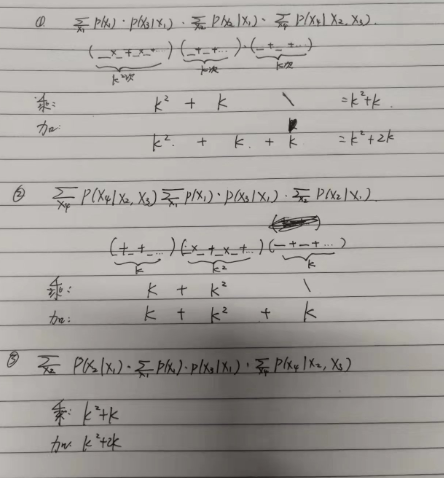 ① Σx₁ P(x₁)·P(x₃|x₁)·Σx₂ P(x₂|x₁)·Σx₄ P(x₄|x₂,x₃).
(_x_+_x_+...)(_+_+...)·(_+_+...)
k²次 k次 k次
乘: k² + k \ =k²+k.
加: k². + k. + k =k²+2k
② Σx₄ P(x₄|x₂,x₃) Σx₁ P(x₁)·P(x₃|x₁)·Σx₂ P(x₂|x₁).
(_+_+...)(_x_+_x_+...)(_+_+...)
k k² k
乘: k + k² \
加: k + k² + k
③ Σx₂ P(x₂|x₁)·Σx₁ P(x₁)·P(x₃|x₁)·Σx₄ P(x₄|x₂,x₃)
乘: k²+k
加: k²+2k